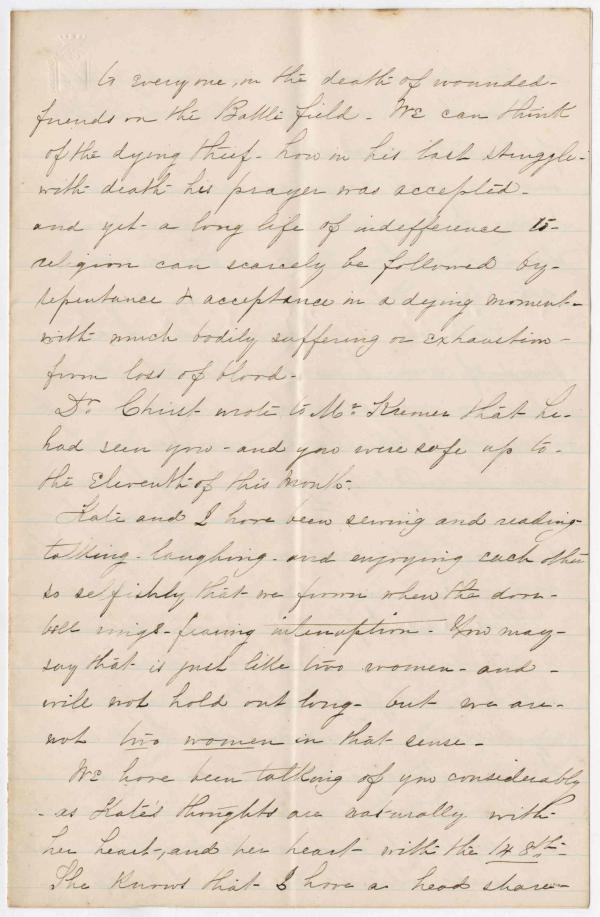 to everyone, in the death of wounded-
friends on the Battle field - We can think
of the dying thief - how in his last struggle-
with death his prayer was accepted -
and yet - a long life of indefference to-
religion can scarcely be followed by-
repentance & acceptance in a dying moment-
with much bodily suffering or exhaustion-
from loss of blood -
Dr. Christ wrote to Mr. Kremer that he-
had seen you - and you were safe up to-
the Eleventh of this Month.
Kate and I have been sewing and reading-
talking - laughing - and enjoying each other
so selfishly that we frown when the door-
bell rings - fearing interruption - You may-
say that is just like two women - and -
will not hold out long - but we are-
not two women in that sense -
We have been talking of you considerably
- as Kate's thoughts are naturally with
her heart-, and her heart - with the 148th-
She knows that I have a head share-